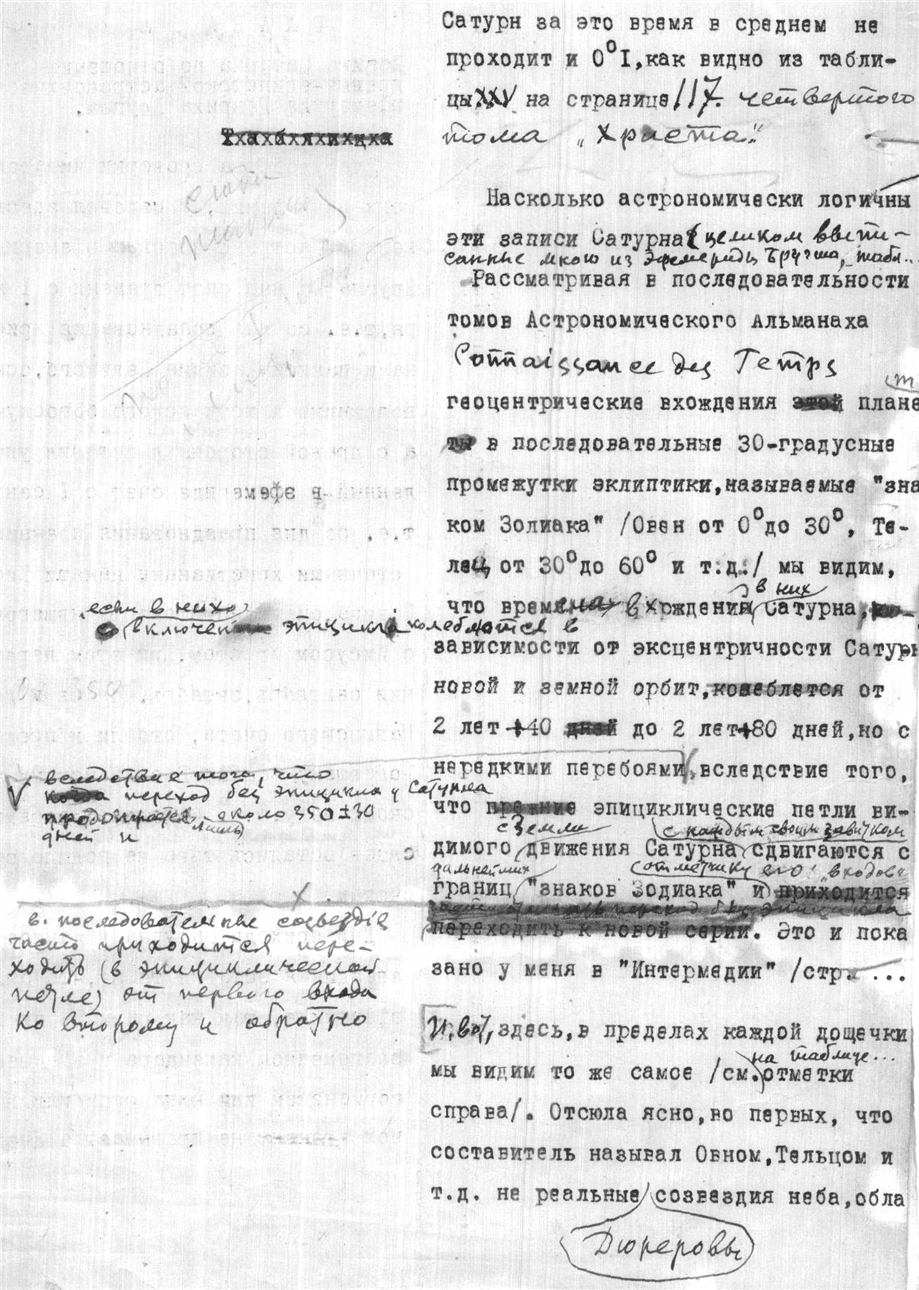 Сатурн за это время в среднем не
проходит и 0°I,как видно из табли-
цы XXV на странице 117. четвертого
тома „Христа".
Тхахахяхихцха
Насколько астрономически логичны
эти записи Сатурна (целиком выпи-
санные мною из Эфемерид
Рассматривая в последовательности
томов Астрономического Альманаха
Connaissance des Temps
геоцентрические вхождения этой плане
ты в последовательные 30-градусные
промежутки эклиптики,называемые "зна
ком Золиака" /Овен от 0° до 30°, Те-
лец от 30° до 60° и т.д./ мы видим,
в них
что времена вхождения Сатурна,
если в них
включен эпицикл колеблются в
зависимости от эксцентричности Сатурн
новой и земной орбит,колеблется от
2 лет +40 дней до 2 лет+80 дней,но с
нередкими перебоями,вследствие того,
вследствие того, что
когда переход без эпицикла у Сатурна
продолжается лишь около 350±30
дней и
что прежние эпициклические петли ви-
с Земли с каждым своим завитком
димого движения Сатурна сдвигаются с
дальнейших его входов
границ "знаков Зодиака" и приходится
переходить к новой серии. Это и пока
зано у меня в "Интермедии" /стр. ...
в последовательные созвездия
часто приходится пере-
ходить (в эпициклической
петле) от первого входа
ко второму и обратно
И,вот,здесь,в пределах каждой дощечки
на таблице...
мы видим то же самое /см.отметки
справа/. Отсюла ясно,во первых, что
составитель называл Овном,Тельцом и
т.д. не реальные созвездия неба,обла
Дюреровы